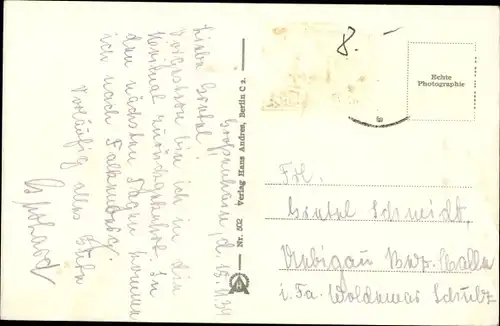 Großenhain, d. 15.11.34
Liebe Gretel!
bin ich in die
zurückgekehrt. In
den nächsten Tagen komme
ich nach Falkenberg.
Vorläufig alles Gute
Gerhard
Nr. 502 Verlag Hans Andres, Berlin C 2.
8.-
Echte
Photographie
Frl.
Gretel Schmidt,
Uebigau Bez. Halle
i. Fa. Woldemar Schulz